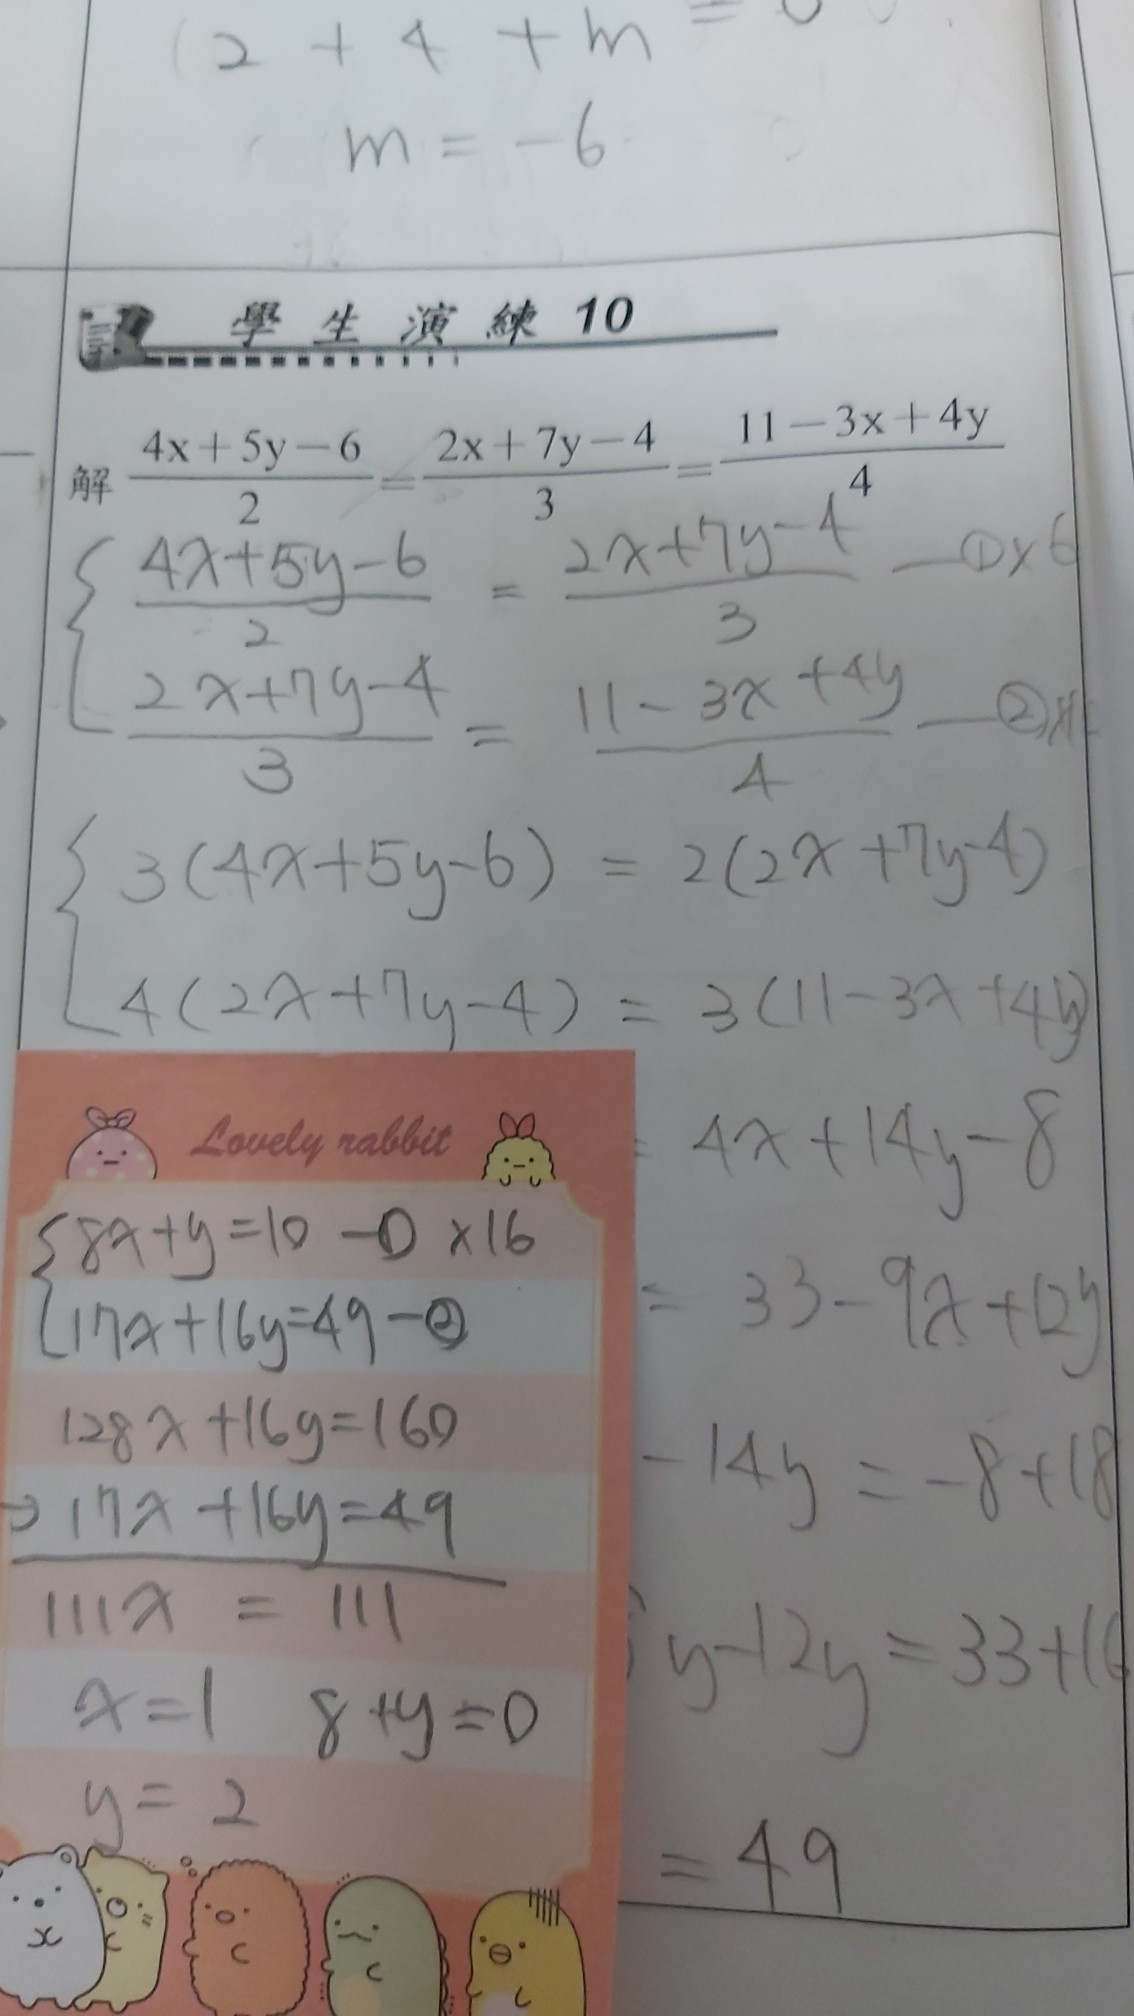 2 + 4 + m =
m = -6
學生演練 10
解 (4x+5y-6)/2 = (2x+7y-4)/3 = (11-3x+4y)/4
{ (4x+5y-6)/2 = (2x+7y-4)/3 —①×6
(2x+7y-4)/3 = (11-3x+4y)/4 —②×
{ 3(4x+5y-6) = 2(2x+7y-4)
4(2x+7y-4) = 3(11-3x+4y)
= 4x+14y-8
= 33-9x+12y
-14y = -8+18
y-12y = 33+16
= 49
Lovely rabbit
{ 8x+y=10 —① ×16
17x+16y=49 —②
128x+16y=160
-) 17x+16y=49
111x = 111
x=1 8+y=0
y=2